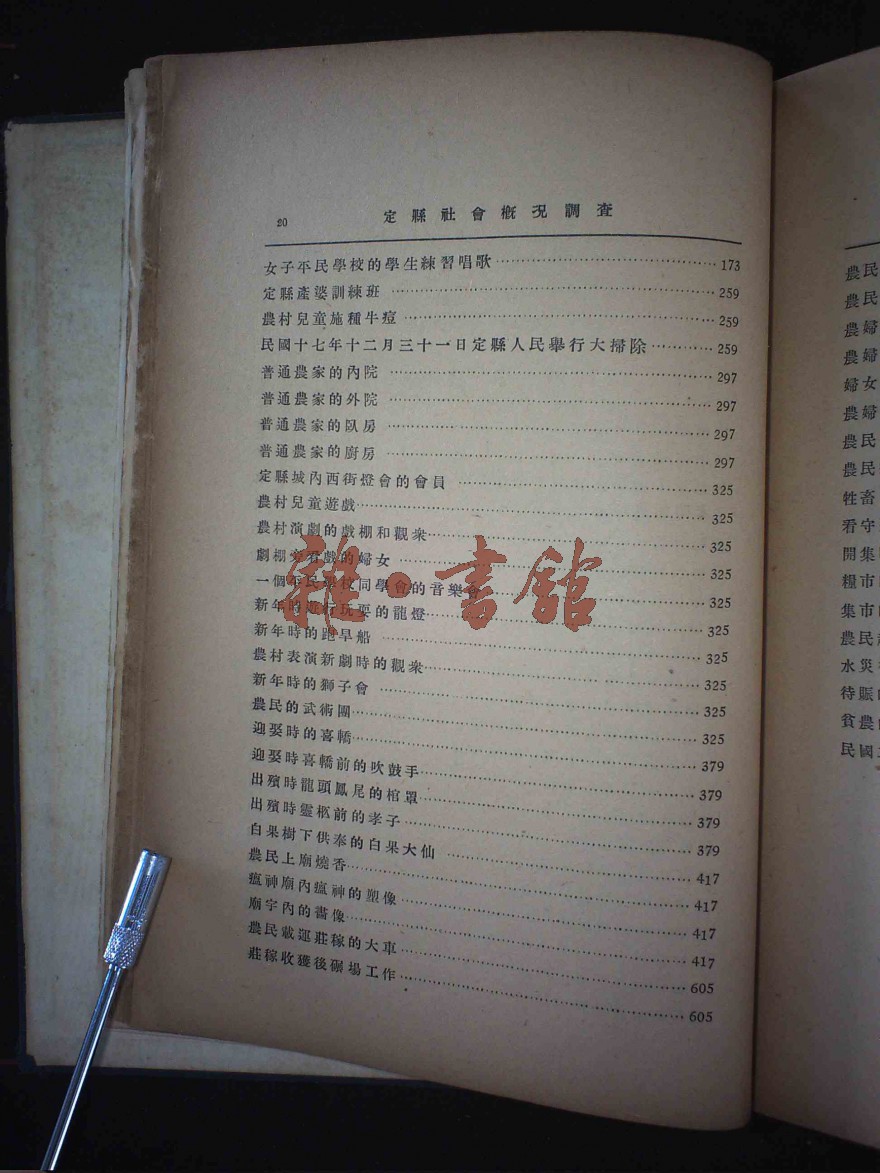 20 定縣社會概况調查
女子平民學校的學生練習唱歌……173
定縣產婆訓練班……259
農村兒童施種牛痘……259
民國十七年十二月三十一日定縣人民舉行大掃除……259
普通農家的內院……297
普通農家的外院……297
普通農家的臥房……297
普通農家的廚房……297
定縣城內西街燈會的會員……325
農村兒童遊戲……325
農村演劇的戲棚和觀衆……325
劇棚旁看戲的婦女……325
一個平民學校同學會的音樂會……325
新年時遊行玩耍的龍燈……325
新年時的跑旱船……325
農村表演新劇時的觀衆……325
新年時的獅子會……325
農民的武術團……325
迎娶時的喜轎……379
迎娶時喜轎前的吹鼓手……379
出殯時龍頭鳳尾的棺罩……379
出殯時靈柩前的孝子……379
白果樹下供奉的白果大仙……417
農民上廟燒香……417
瘟神廟內瘟神的塑像……417
廟宇內的畫像……417
農民載運莊稼的大車……605
莊稼收獲後碾場工作……605
雜·書館
農民
農民
農婦
農婦
婦女
農婦
農民
農民
牲畜
看守
開集
糧市
集市
農民
水災
待賑
貧農
民國